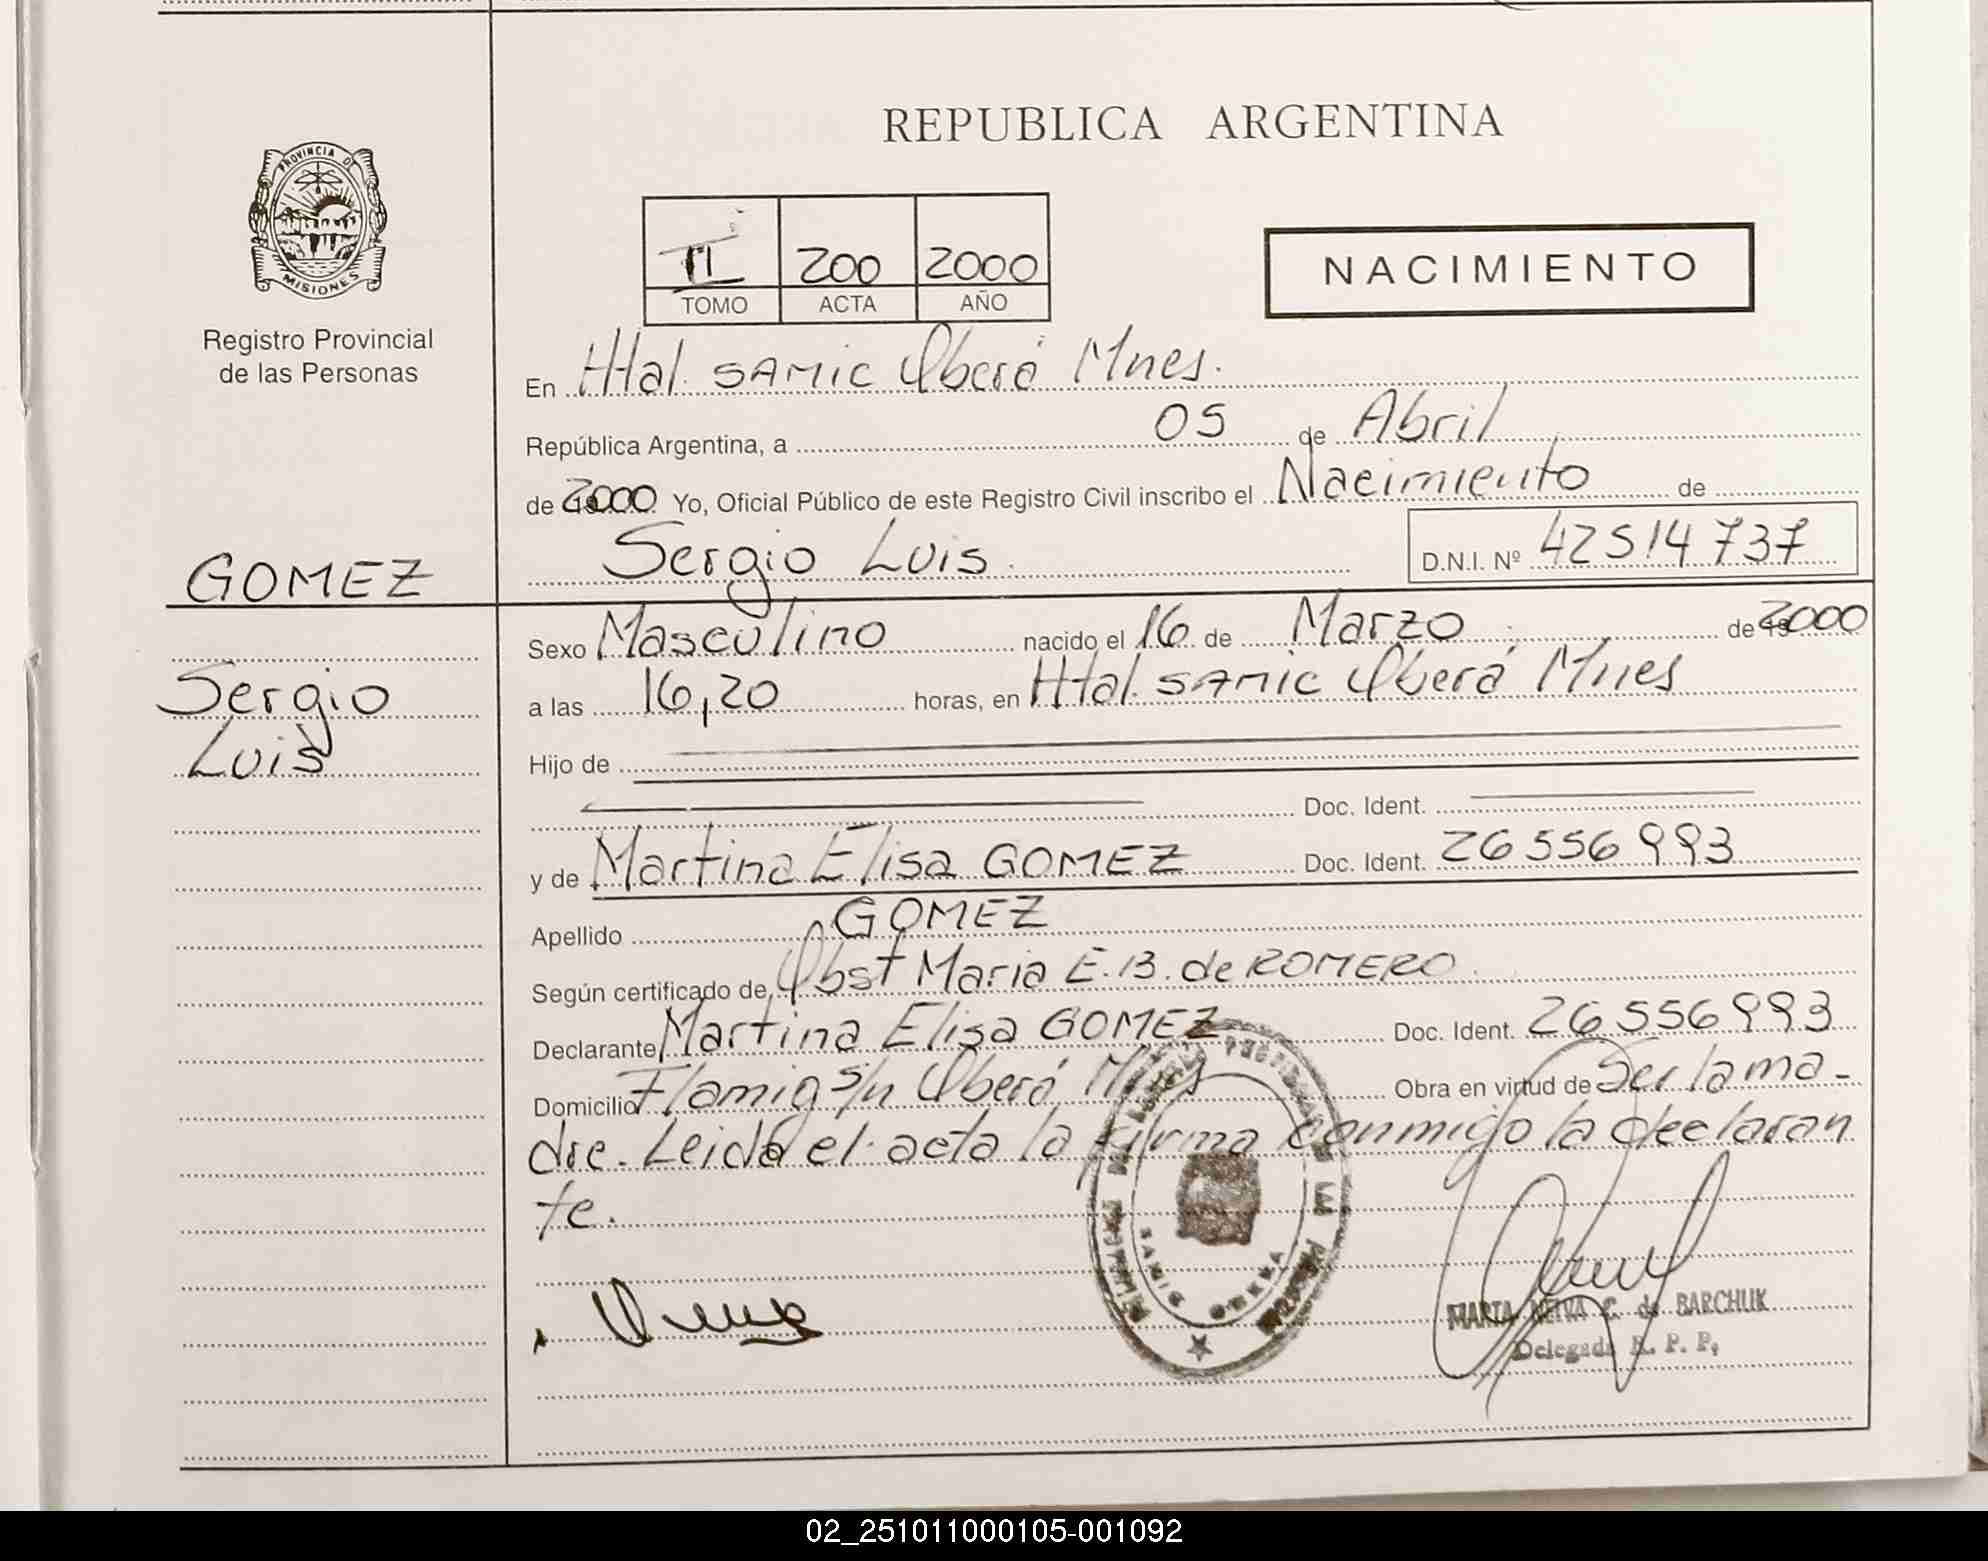 REPUBLICA ARGENTINA
PROVINCIA DE
MISIONES
Registro Provincial
de las Personas
II 200 2000
TOMO ACTA AÑO
NACIMIENTO
En Htal. SAMIC Oberá Mnes.
República Argentina, a 05 de Abril
de 2000 Yo, Oficial Público de este Registro Civil inscribo el Nacimiento de
Sergio Luis. D.N.I. Nº 42514737
GOMEZ
Sergio
Luis
Sexo Masculino nacido el 16 de Marzo de 2000
a las 16,20 horas, en Htal. SAMIC Oberá Mnes
Hijo de
Doc. Ident.
y de Martina Elisa GOMEZ Doc. Ident. 26556993
Apellido GOMEZ
Según certificado de Obst Maria E.B. de ROMERO.
Declarante Martina Elisa GOMEZ Doc. Ident. 26556993
Domicilio s/n Oberá Mnes Obra en virtud de Ser la ma-
dre. Leida el acta la firma conmigo la declaran
te.
MARTA NEIVA C. de BARCHUK
Delegada R. P. P.
02_251011000105-001092